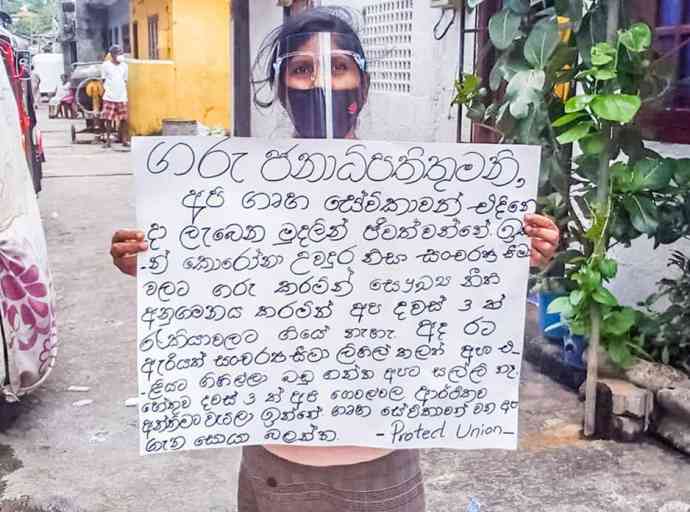 ගරු ජනාධිපතිතුමනි,
අපි ගෘහ සේවිකාවන් එදිනෙ
දා ලැබෙන මුදලින් ජීවත්වන්නේ. ඉ-
-න් කොරෝනා උවදුර නිසා සංචරණ සීමා
වලට ගරු කරමින් සෞඛ්‍ය නීති
අනුගමනය කරමින් අප දවස් 3 ක්
රැකියාවලට ගියේ නැහැ. අද රට
ඇරියත් සංචරණ සීමා ලිහිල් කලත් අප එ-
-ළියට ගිහිල්ලා බඩු ගන්න අපට සල්ලි නෑ.
හේතුව දවස් 3 ක් අප ගෙවල්වල. ආර්ථිකව
අන්තිමට වැටිලා ඉන්නේ. ගෘහ සේවිකාවන් වන අප
ගැන සොයා බලන්න. - Protect Union_